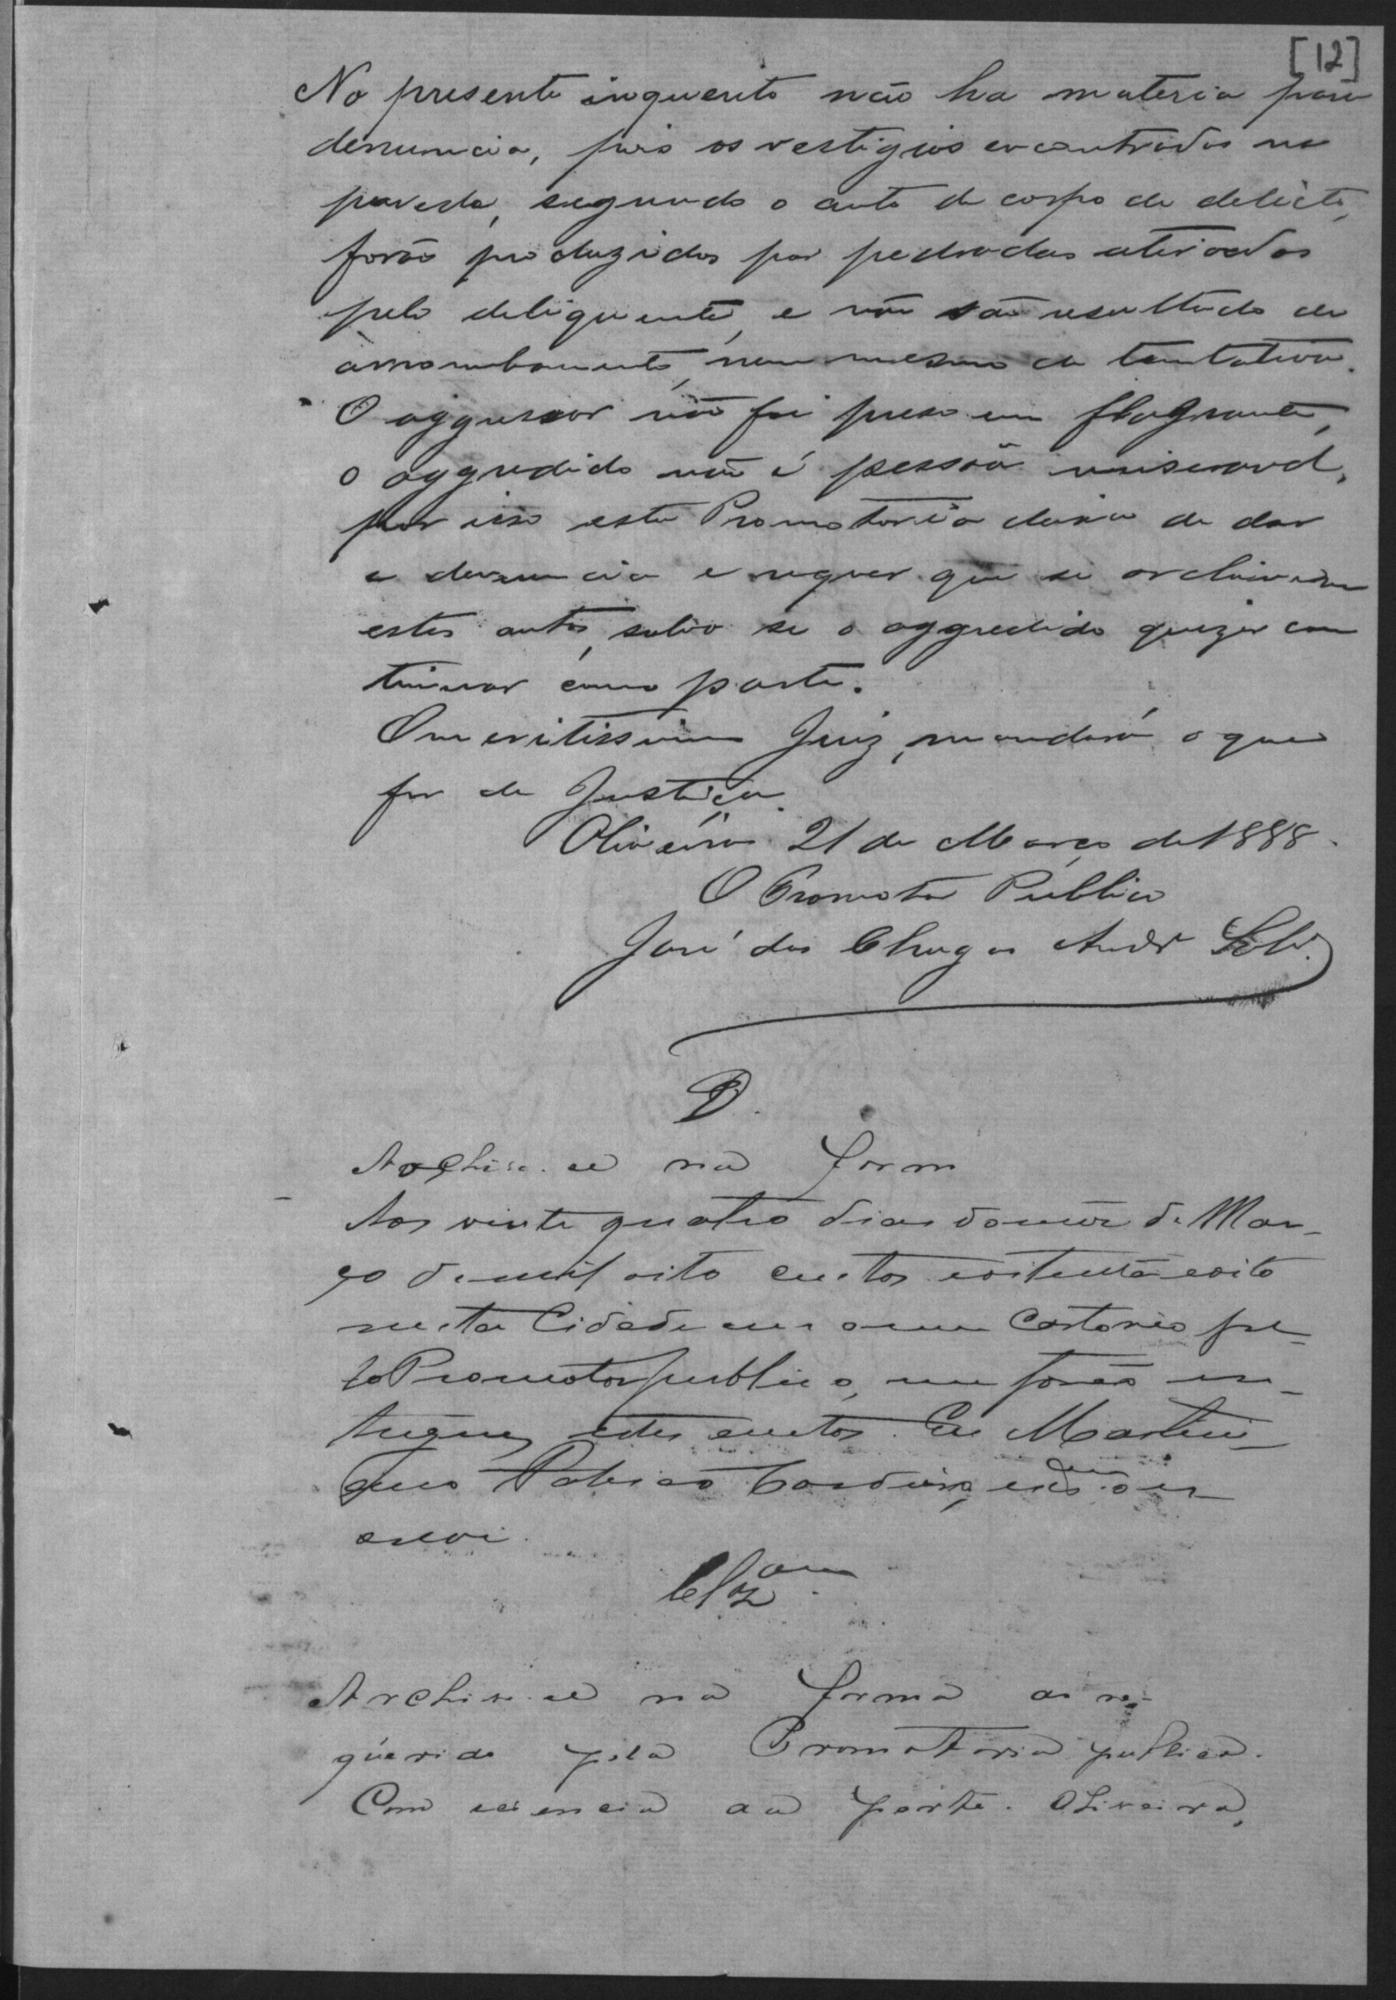 [12]
No presente inquerito não ha materia para
denuncia, pois os vestigios encontrados na
parede, segundo o auto de corpo de delicto,
forão produzidos por pedradas atiradas
pelo deliquente, e não são resultado de
arrombamento, nem mesmo de tentativa.
O aggressor não foi preso em flagrante,
o aggredido não é pessoa miseravel,
por isso esta Promotoria deixa de dar
a denuncia e requer que se archivem
estes autos, salvo se o aggredido quizer con
tinuar como parte.
O meritissimo Juiz, mandará o que
for de Justiça.
Oliveira 21 de Março de 1888.
O Promotor Publico
José das Chagas Andr
D.
Archive-se na form
Aos vinte quatro dias do mez de Mar-
ço de mil oito centos e oitenta e oito
nesta Cidade em o meu Cartorio pe-
lo Promotor publico, me forão en-
tregues estes autos. Eu Marti
escrivão o es
crevi.
Clzam
Archive-se na forma
querido pela Promotoria publica.
Com sciencia a parte. Oliveira,